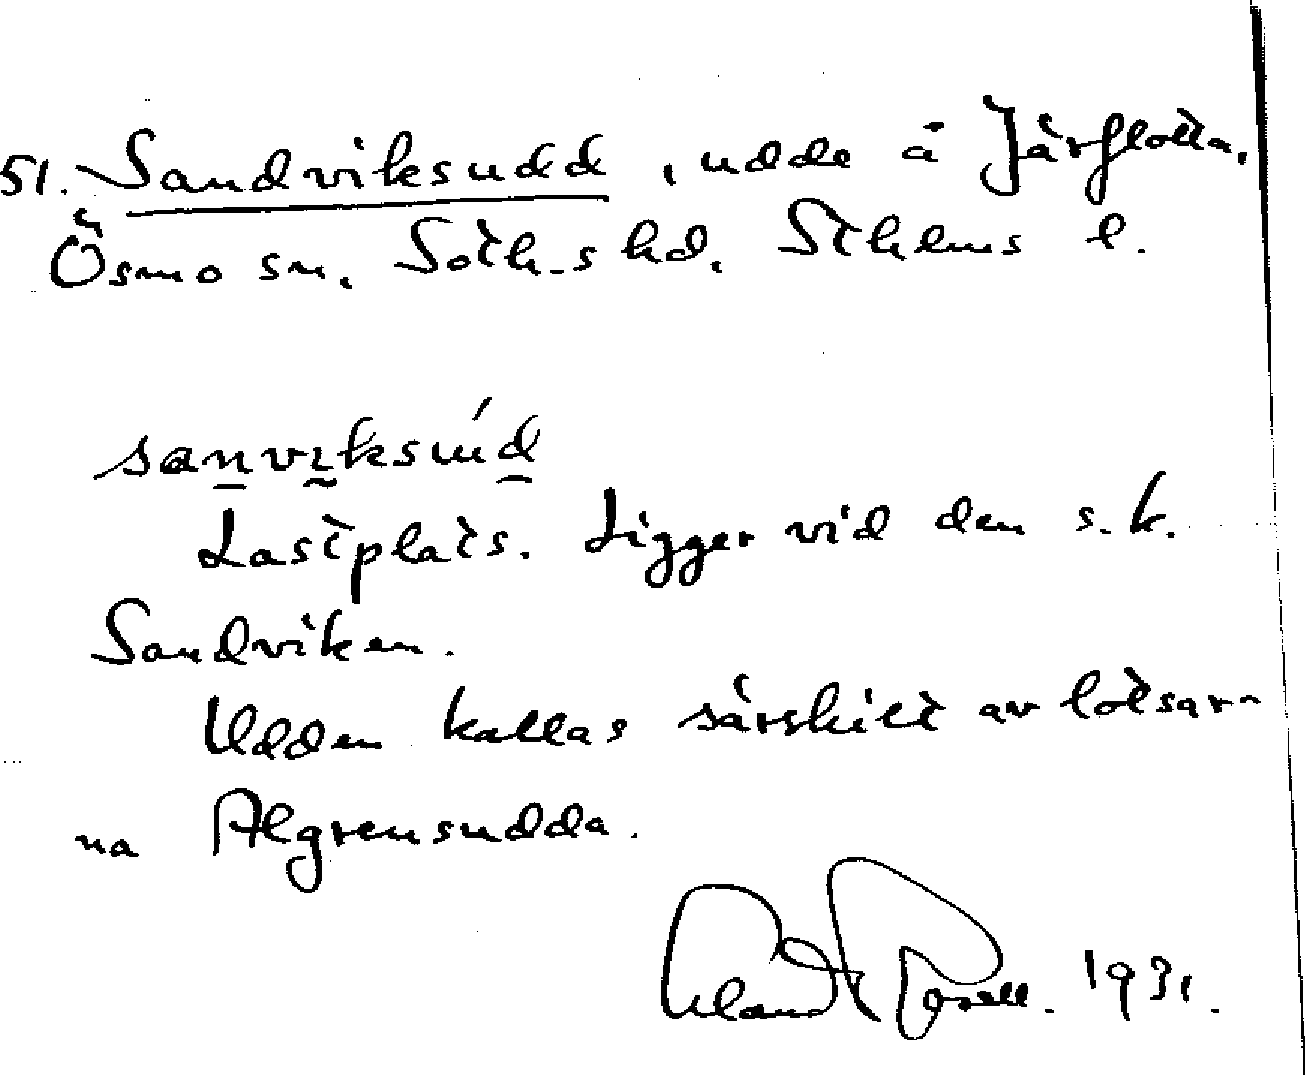 51. Sandviksudd, udde å Järflotta,
Ösmo sn. Soth-s hd. Sthlms l.
sanviksúd
Lastplats. Ligger vid den s.k.
Sandviken.
Udden kallas särskilt av lotsar-
na Algrensudda.
1931.